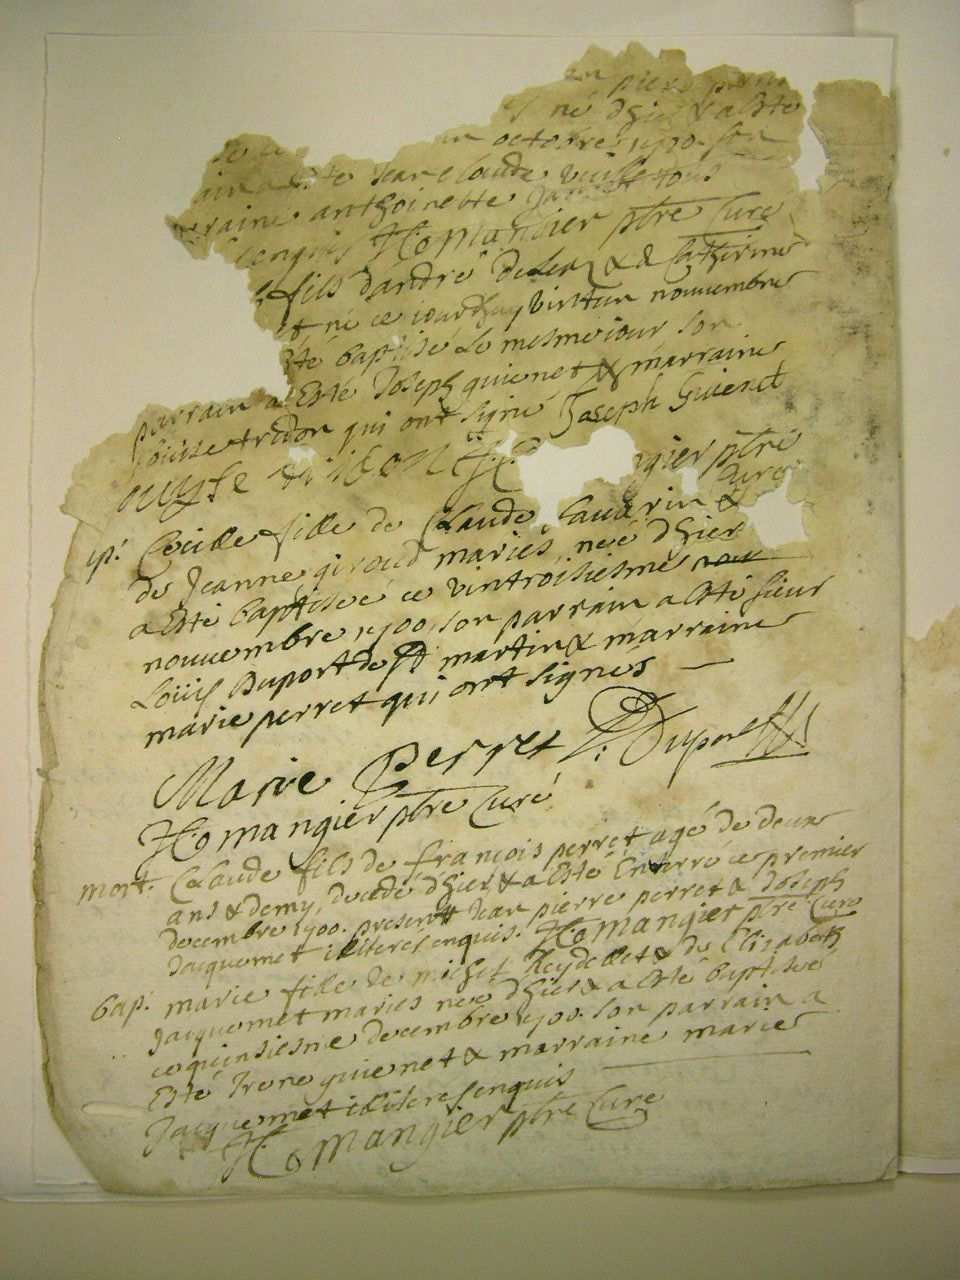 né d'hier & a esté
octobre 1700. son
esté Jean claude vuille
raine anthoinette tous
enquis Homangier ptre Curé
fils d'andré & de Catherine
né ce jourdhuy vintun nouembre
esté baptisé le mesme jour son
parrain a Esté Joseph guienet & marraine
louise tridon qui ont signé Joseph Guienet
ouyse tridon H gier ptre
Curé
ap. Cecille fille de Claude &
de Jeanne giroud mariés, née d'hier
a Esté baptisée ce vintroisiesme
nouuembre 1700, son parrain a Esté sieur
Loüis Duport de st martin & marraine
marie perret qui ont signés
Marie Perret L. Duport
Homangier ptre Curé
mort. Claude fils de françois perret agé de deux
ans & demy, decedé d'hier & a Esté Enterré ce premier
decembre 1700. presents Jean pierre perret & Joseph
Jacquemet illiteres enquis. Homangier ptre Curé
bap. marie fille de michel Reydellet & de Elizabeth
Jacquemet mariés née d'hier & a Esté baptisée
ce quinsiesme decembre 1700. son parrain a
Esté Irene guienet & marraine marie
Jacquemet illiteres enquis
Homangier ptre Curé